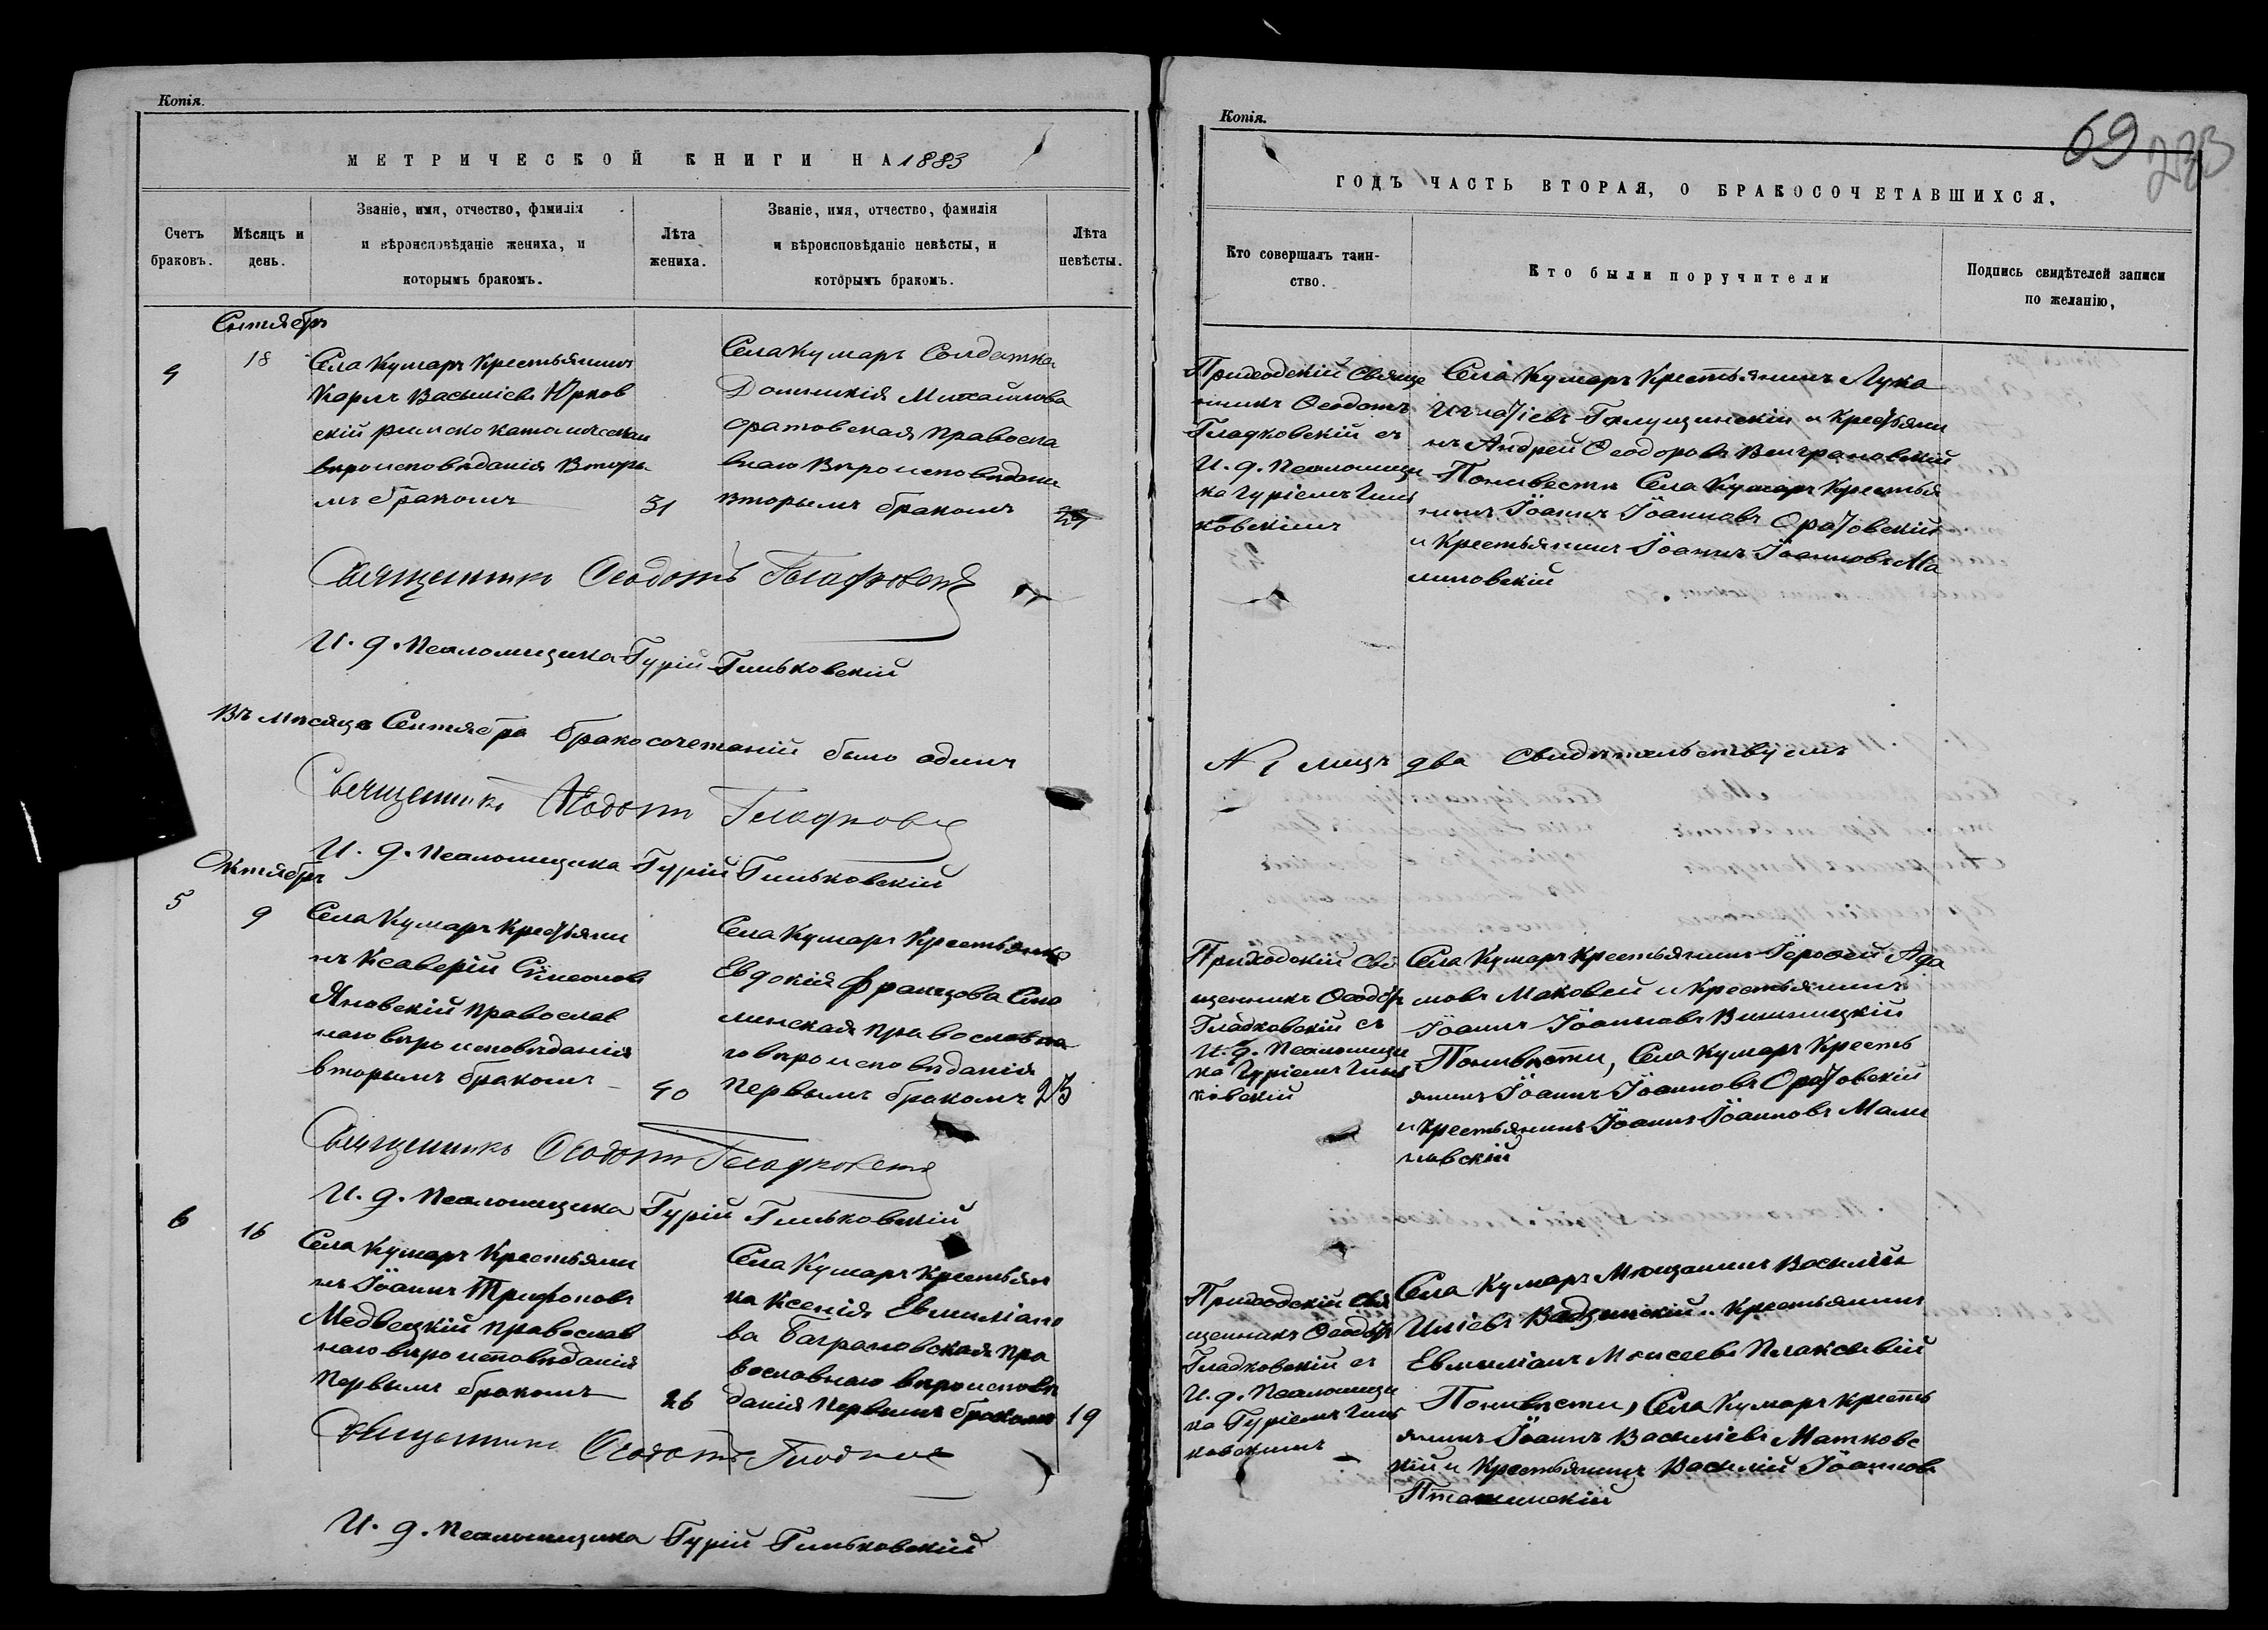 Копія.
МЕТРИЧЕСКОЙ КНИГИ НА 1883
Счетъ браковъ.
Мѣсяцъ и день.
Званіе, имя, отчество, фамилія
и вѣроисповѣданіе жениха, и
которымъ бракомъ.
Лѣта жениха.
Званіе, имя, отчество, фамилія
и вѣроисповѣданіе невѣсты, и
которымъ бракомъ.
Лѣта невѣсты.
Сентябрь
4
18
Села Кумаръ Крестьянинъ
Карлъ Васильевъ Юрков
скій римско католическаго
вѣроисповѣданія Вторы
мъ бракомъ
31
Села Кумаръ Солдатка
Домникія Михайлова
Оратовская Правосла
внаго Вѣроисповѣдани
вторымъ бракомъ
Священникъ Ѳеодотъ Гладковскій
И. д. Псаломщика Гурій Гиньковскій
Въ мѣсяцѣ Сентябрѣ бракосочетаній было одинъ
Священникъ Ѳеодотъ Гладковс
И. д. Псаломщика Гурій Гиньковскій
Октябрь
5
9
Села Кумаръ Крестьяни
нъ Ксаверій Симеоновъ
Яновскій Православ
наго вѣроисповѣданія
вторымъ бракомъ
40
Села Кумаръ Крестьянка
Евдокія Францова Смо
линская православна
го вѣроисповѣданія
Первымъ бракомъ
23
Священникъ Ѳеодотъ Гладковскій
И. д. Псаломщика Гурій Гиньковскій
6
16
Села Кумаръ Крестьяни
нъ Іоаннъ Трифоновъ
Медвецкій православ
наго вѣроисповѣданія
Первымъ бракомъ
26
Села Кумаръ Крестьян
ка Ксенія Евмиліано
ва Баграновская Пра
вославнаго вѣроисповѣ
данія Первымъ бракомъ
19
Священникъ Ѳеодотъ Гладковс
И. д. Псаломщика Гурій Гиньковскій
Копія.
69
233
ГОДЪ ЧАСТЬ ВТОРАЯ, О БРАКОСОЧЕТАВШИХСЯ.
Кто совершалъ таин-
ство.
Кто были поручители
Подпись свидѣтелей записи
по желанію,
Приходскій Свяще
нникъ Ѳеодотъ
Гладковскій съ
И. д. Псаломщи
ка Гуріемъ Гинь
ковскимъ
Села Кумаръ Крестьянинъ Лука
Игнатіевъ Галущинскій и Крестьяни
нъ Андрей Ѳеодоровъ Венграновскій
По невестѣ Села Кумаръ Крестья
нинъ Іоаннъ Іоанновъ Оратовскій
и Крестьянинъ Іоаннъ Іоанновъ Ма
линовскій
лицъ два Свидѣтельствуемъ
Приходскій Свя
щенникъ Ѳеодотъ
Гладковскій съ
И. д. Псаломщи
ка Гуріемъ Гинь
ковскій
Села Кумаръ Крестьянинъ Іероѳей Ада
мовъ Маковей и Крестьянинъ
Іоаннъ Іоанновъ Винницкій
По невѣсти, Села Кумаръ Кресть
янинъ Іоаннъ Іоанновъ Оратовскій
и Крестьянинъ Іоаннъ Іоанновъ Мали
новскій
Приходскій Свя
щенникъ Ѳеодотъ
Гладковскій съ
И. д. Псаломщи
ка Гуріемъ Гинь
ковскимъ
Села Кумаръ Мещанинъ Василій
Иліевъ Вадзинскій и Крестьянинъ
Евмиліанъ Моисеевъ Плаксивій
По невѣсти, Села Кумаръ Кресть
янинъ Іоаннъ Василіевъ Матковс
кій и Крестьянинъ Василій Іоанновъ
Пташинскій